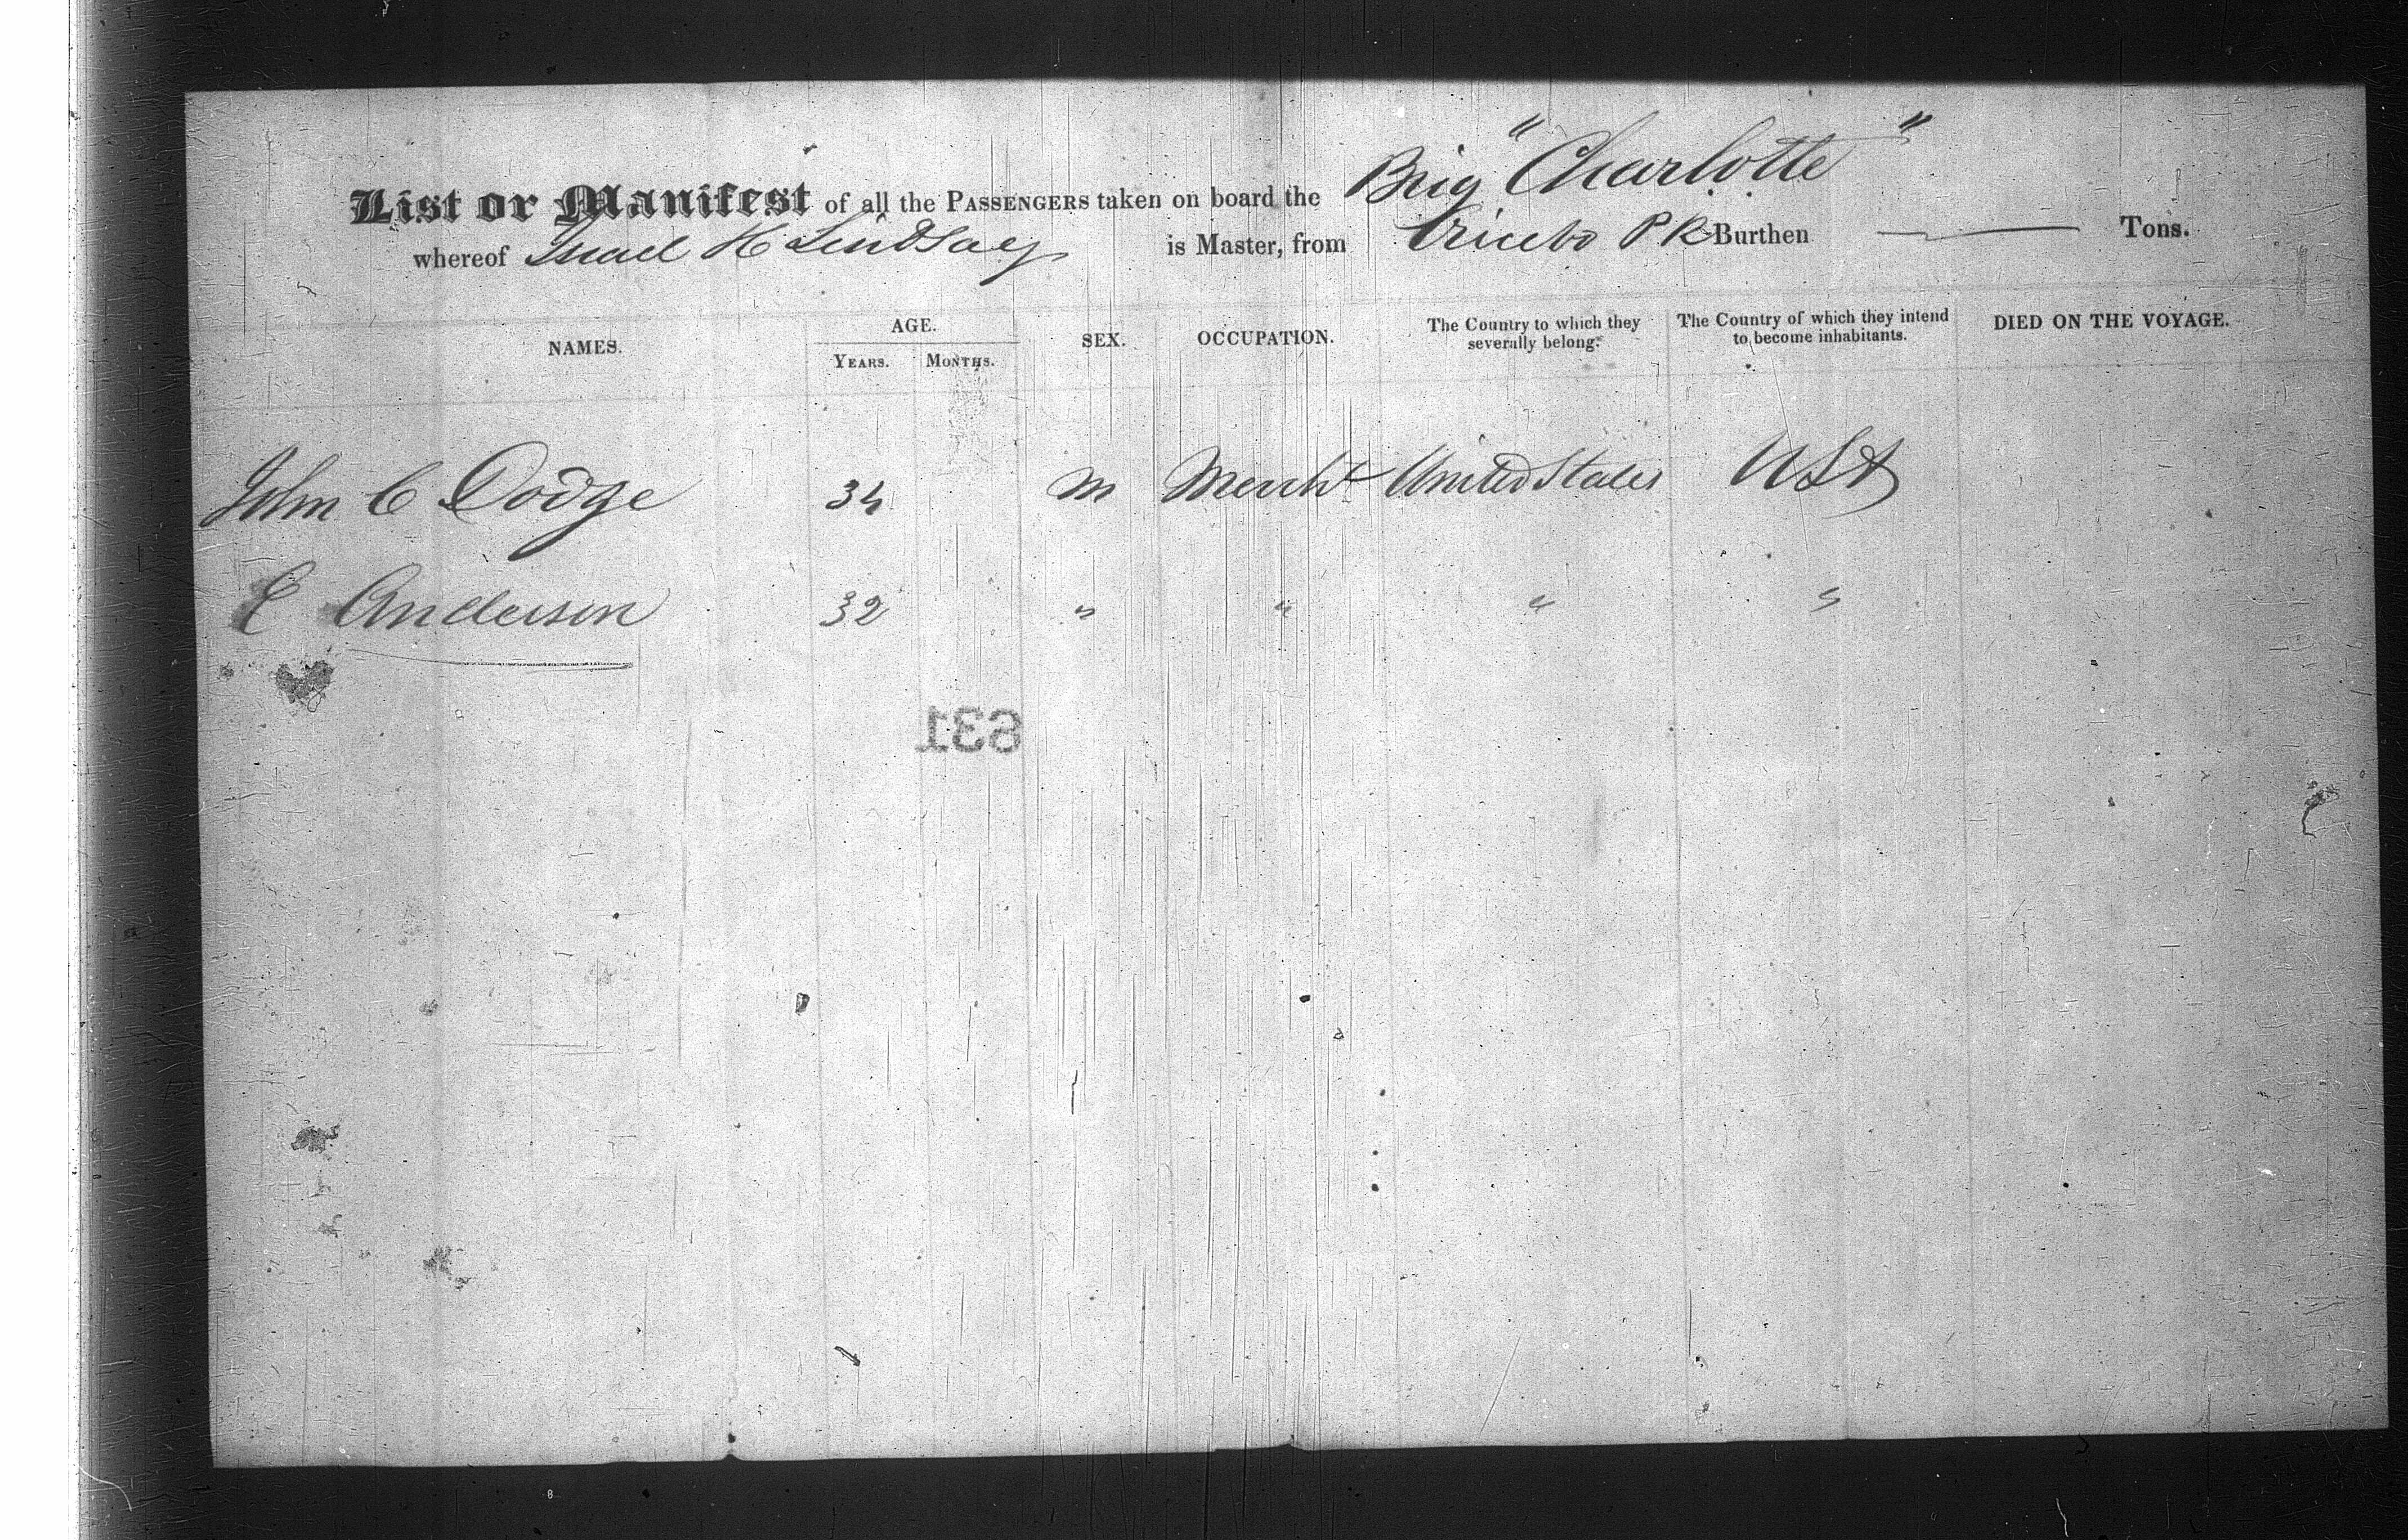 Brig "Charlotte"
List or Manifest of all the PASSENGERS taken on board the
whereof H Lindsay is Master, from P R Burthen Tons.
NAMES. AGE. YEARS. MONTHS. SEX. OCCUPATION. The Country to which they severally belong. The Country of which they intend to become inhabitants. DIED ON THE VOYAGE.
John C Dodge 34 M Mercht United States USA
E Anderson 32 " " " "
631